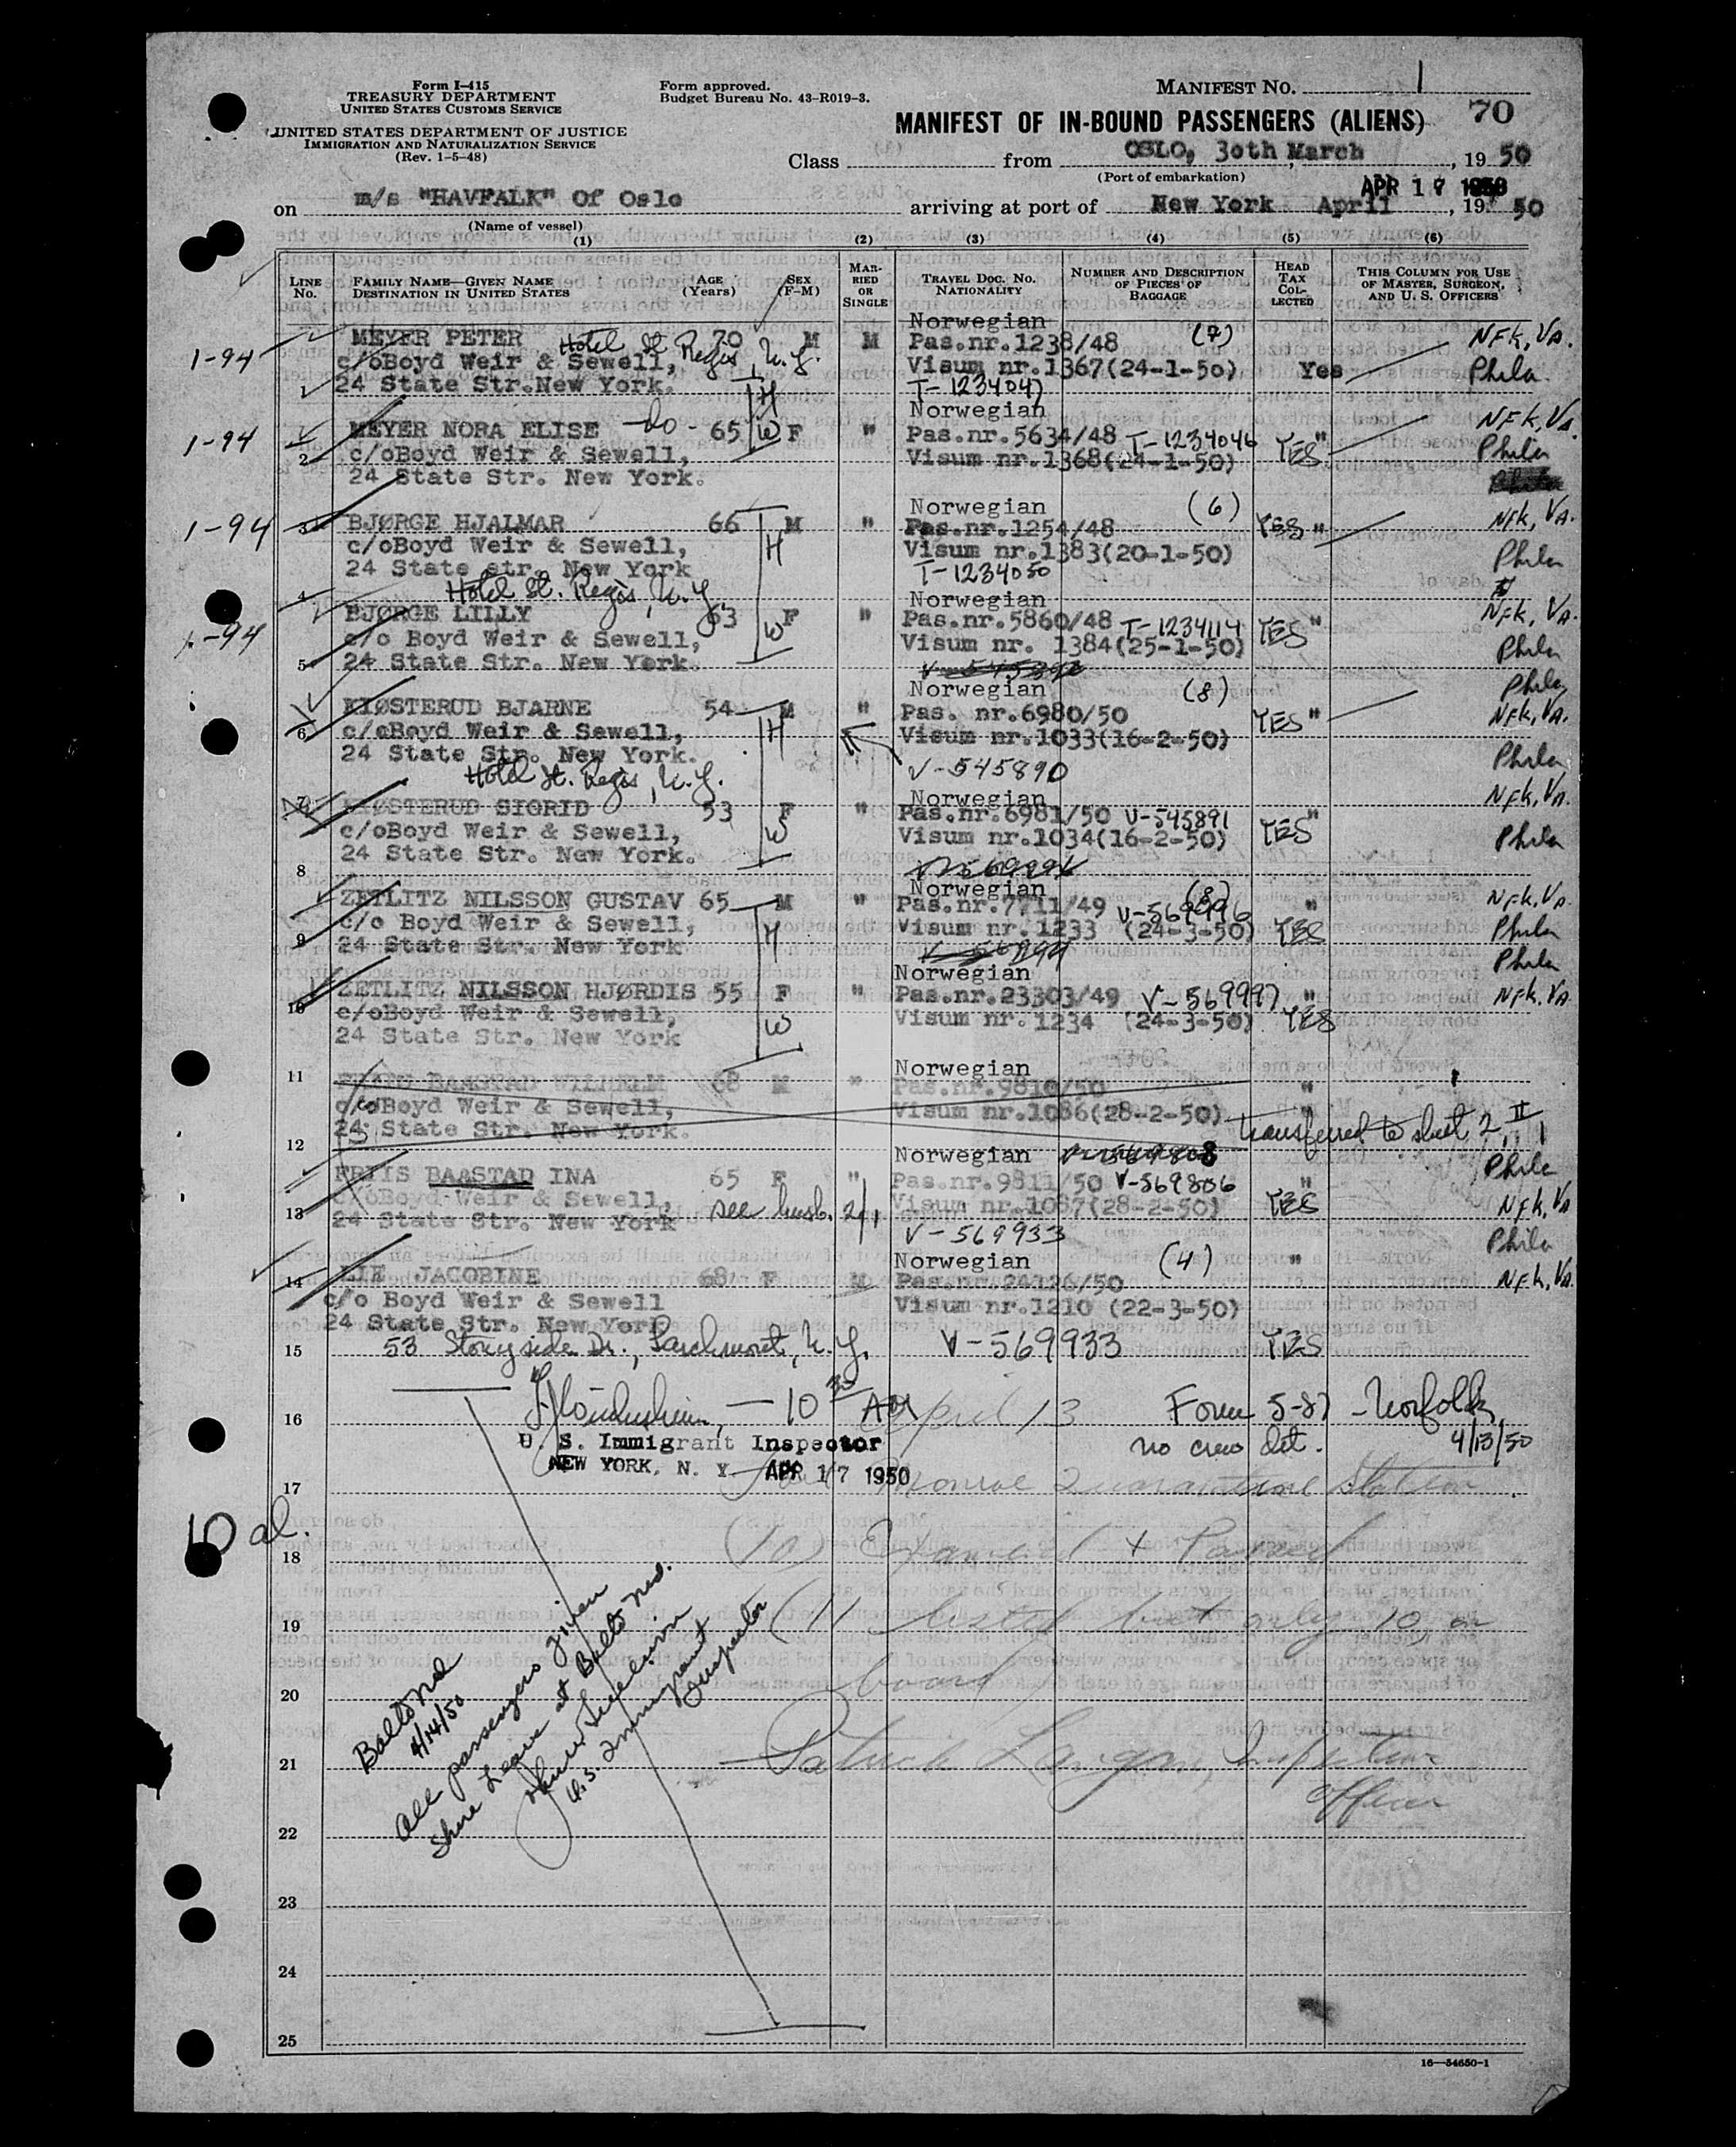 Form I-415
TREASURY DEPARTMENT
UNITED STATES CUSTOMS SERVICE
UNITED STATES DEPARTMENT OF JUSTICE
IMMIGRATION AND NATURALIZATION SERVICE
(Rev. 1-5-48)
Form approved.
Budget Bureau No. 43-R019-3.
MANIFEST NO. 1
MANIFEST OF IN-BOUND PASSENGERS (ALIENS) 70
Class from OSLO, 30th March, 19 50
(Port of embarkation)
APR 17 1950
on m/s "HAVFALK" Of Oslo arriving at port of New York April, 19 50
(Name of vessel)
(1) (2) (3) (4) (5) (6)
LINE NO.
FAMILY NAME—GIVEN NAME
DESTINATION IN UNITED STATES
AGE (Years)
SEX (F-M)
MARRIED OR SINGLE
TRAVEL DOC. NO. NATIONALITY
NUMBER AND DESCRIPTION OF PIECES OF BAGGAGE
HEAD TAX COLLECTED
THIS COLUMN FOR USE OF MASTER, SURGEON, AND U. S. OFFICERS
Norwegian
1-94 MEYER PETER Hotel St Regis, N.Y. 70 M M Pas.nr.1238/48 (7) NFK, VA.
c/oBoyd Weir & Sewell, Visum nr.1367(24-1-50) Yes Phila.
24 State Str.New York. H T-1234047
Norwegian NFK, VA.
1-94 MEYER NORA ELISE -do- 65 W F " Pas.nr.5634/48 T-1234046 YES " Phila
2 c/oBoyd Weir & Sewell, Visum nr.1368(24-1-50)
24 State Str. New York.
Norwegian (6)
1-94 3 BJØRGE HJALMAR 66 M " Pas.nr.1254/48 YES " NFK, VA.
c/oBoyd Weir & Sewell, H Visum nr.1383(20-1-50) Phila
24 State str. New York T-1234050
4 Hotel St. Regis, N.Y. Norwegian
1-94 BJØRGE LILLY 63 F " Pas.nr.5860/48 T-1234114 YES " NFK, VA.
c/o Boyd Weir & Sewell, W Visum nr. 1384(25-1-50) Phila
5 24 State Str. New York.
Norwegian (8) Phila
KIØSTERUD BJARNE 54 M " Pas. nr.6980/50 YES " NFK, VA.
6 c/oBoyd Weir & Sewell, H Visum nr.1033(16-2-50)
24 State Str. New York. V-545890 Phila
Hotel St. Regis, N.Y.
Norwegian NFK, VA.
7 KIØSTERUD SIGRID 53 F " Pas.nr.6981/50 V-545891 YES "
c/oBoyd Weir & Sewell, W Visum nr.1034(16-2-50) Phila
24 State Str. New York.
8
Norwegian (8)
ZETLITZ NILSSON GUSTAV 65 M " Pas.nr.7711/49 V-569996 " NFK, VA
c/o Boyd Weir & Sewell, H Visum nr. 1233 (24-3-50) YES Phila
9 24 State Str. New York
Norwegian Phila
ZETLITZ NILSSON HJØRDIS 55 F " Pas.nr.23303/49 V-569997 " NFK, VA
10 c/oBoyd Weir & Sewell, W Visum nr. 1234 (24-3-50) YES
24 State Str. New York
Norwegian
11 FRIIS BAASTAD WILHELM 68 M " Pas.nr.9810/50 "
c/oBoyd Weir & Sewell, Visum nr.1086(28-2-50)
24 State Str. New York. transferred to sheet 2, II, 1
12 Norwegian
FRIIS BAASTAD INA 65 F " Pas.nr.9811/50 V-569806 " Phila
c/oBoyd Weir & Sewell, see husb. 2/1 Visum nr.1087(28-2-50) YES NFK, VA
13 24 State Str. New York V-569933
Norwegian (4) Phila
14 LIE JACOBINE 68 F M Pas.nr.24126/50 " NFK, VA.
c/o Boyd Weir & Sewell Visum nr.1210 (22-3-50)
24 State Str. New York
15 53 Stonyside Dr., Larchmont, N.Y. V-569933 YES
16 10 30 AM April 13 Form 5-87 - Norfolk,
U. S. Immigrant Inspector no crew det. 4/13/50
NEW YORK, N. Y. APR 17 1950
17 Monroe Quarantine Station
5 al.
18 (10) Examined + Passed
19 (11 listed but only 10 on
20 board
21 Patrick Langan, Inspection
Officer
22
Balto Md
4/14/50
All passengers given
Shore Leave at Balto Md.
U.S. Immigrant
Inspector
23
24
25
16—54650-1